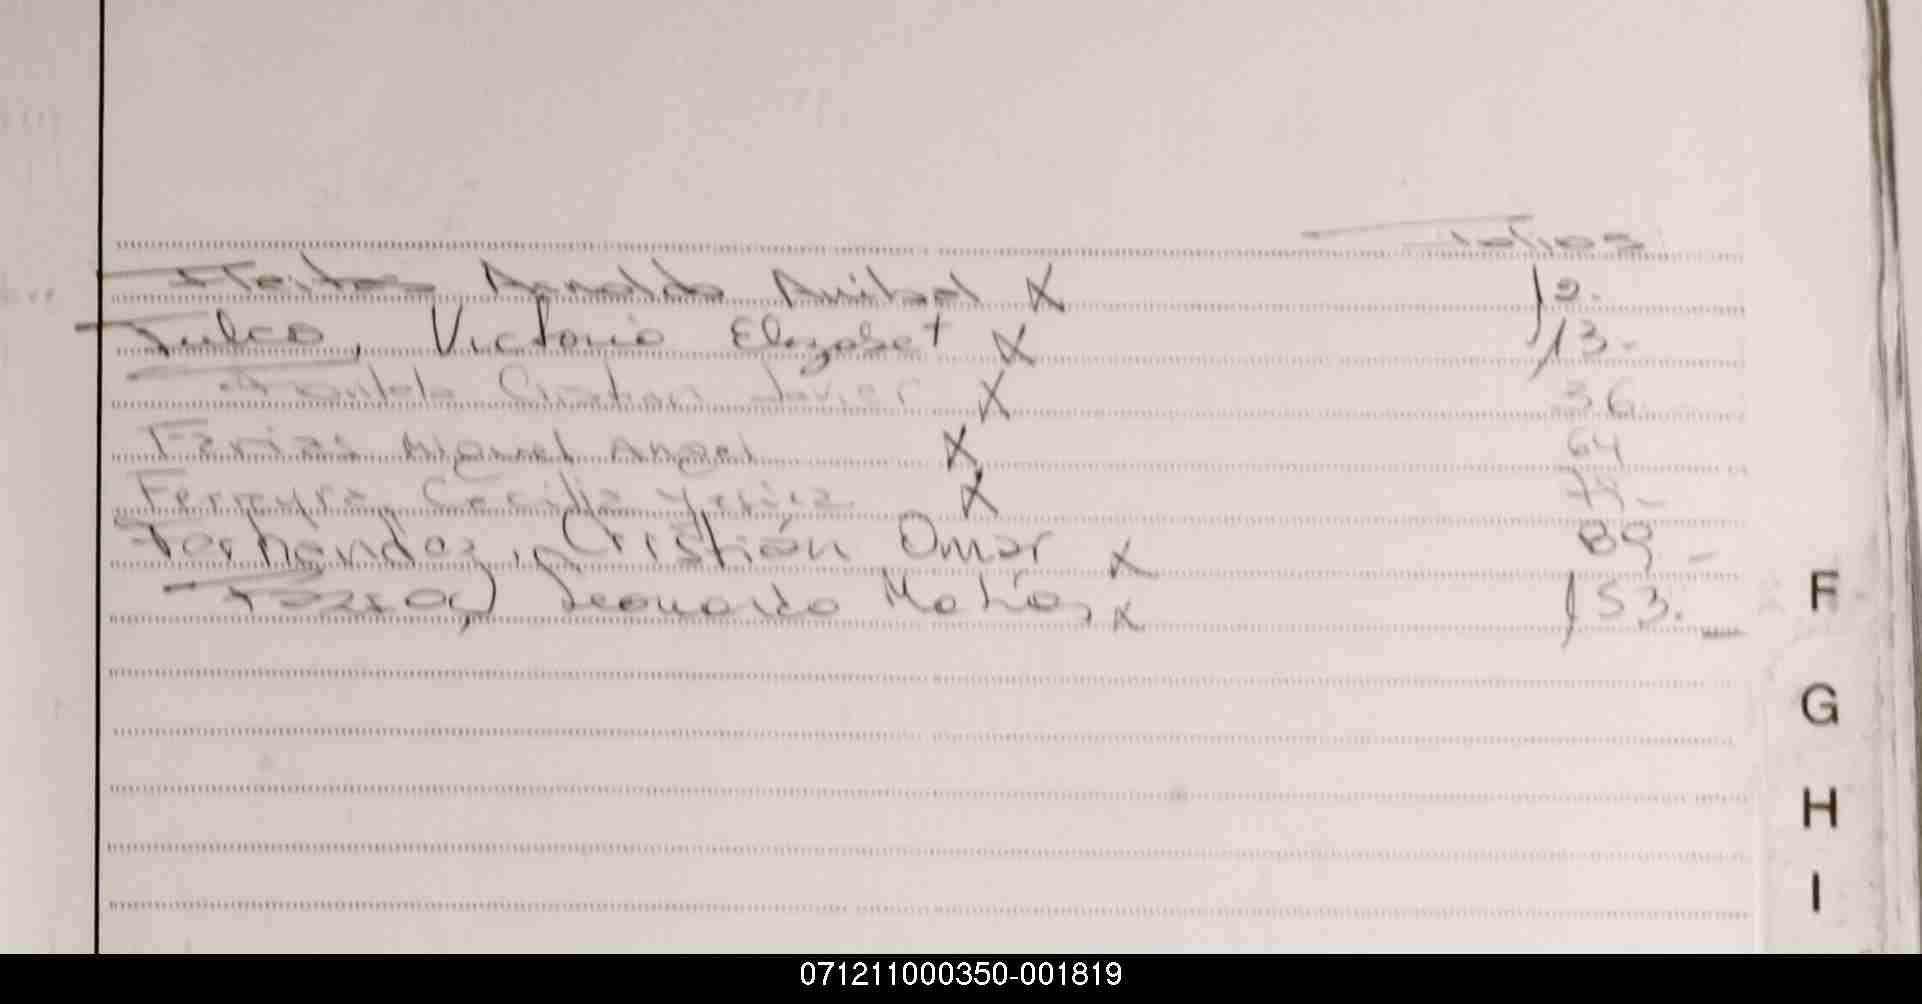 Folios
Fleitas Arnaldo Anibal X 12.
Fulco, Victoria Elizabet X 13.-
Cristian Javier X 36
Farias Miguel Angel X 64
Ferreyra Cecilia X 74-
Fernandez, Cristián Omar X 89-
Leonardo Matías, X 153.-
F
G
H
I
071211000350-001819